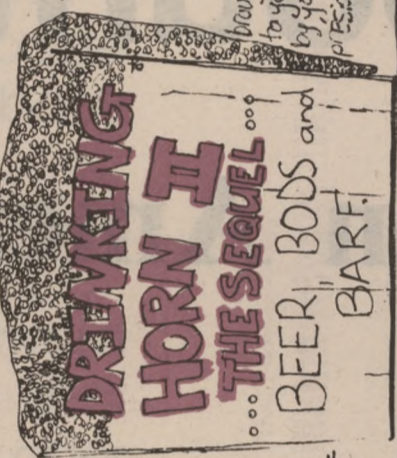 DRINKING
HORN II
...THE SEQUEL...
BEER BODS and
BARF.
to y
by y